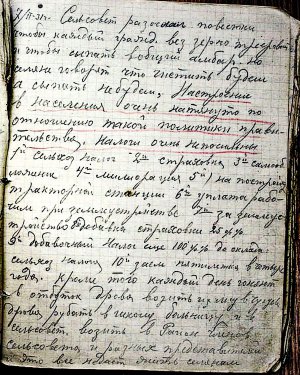 7/II-31г. Сельсовет разослал повестки
чтобы каждый гражд. вез зерно
чтобы сыпать вобщий амбар. но
селяне говорят что чистить будем
а сыпать небудем, Настроение
в населения очень натянуто по
отношению такой политики прави-
тельства, Налоги очень непосильны
1й сельхоз налог 2й страховка 3й самооб-
ложение 4й мелиорация 5й на построй
тракторной станции 6й уплата рабо-
чим при землеустройстве 7й за землеус-
тройство 8 добавка страховки
9й добавочный налог еще 100% до оклада
сельхоз налога 10й заем пятилетка в четыре
года. кроме того каждый день гоняют
дрова возить
дрова рубить в школу больницу и в
сельсовет. возить в Рагин членов
сельсовета и разных представителей
и это все недает жить селянам